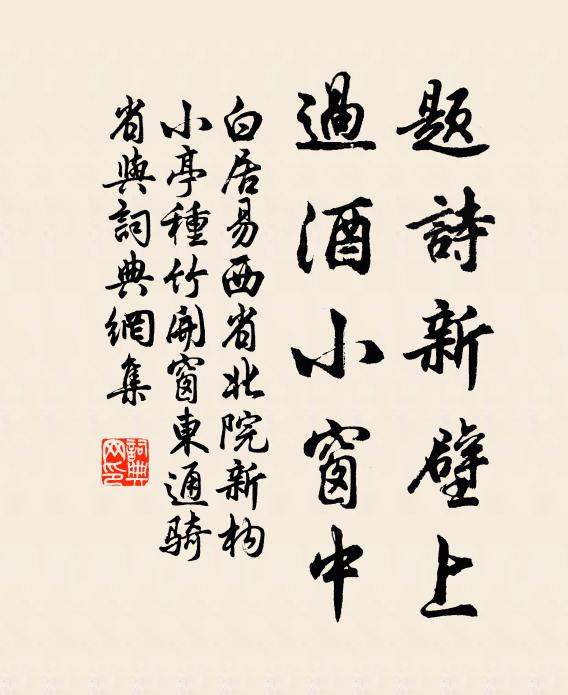 題詩新壁上
過酒小窗中
白居易西省北院新构
小亭種竹開窗東通骑
省與詞典網集
詞典網印